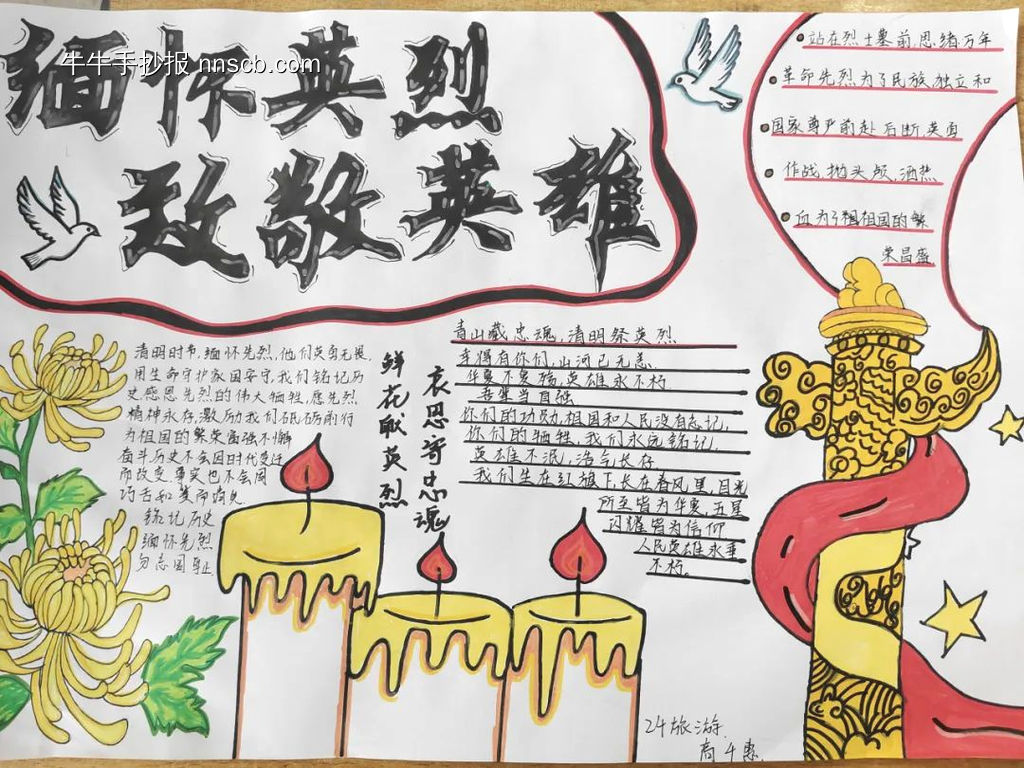 缅怀英烈
牛牛手抄报 nnscb.com
致敬英雄
站在烈士墓前,思绪万年
革命先烈为了民族独立和
国家尊严前赴后断英勇
作战,抛头颅,洒热
血为了祖国的繁
荣昌盛
清明时节,缅怀先烈,他们英勇无畏,
用生命守护家国安宁,我们铭记历
史感恩先烈的伟大牺牲,愿先烈
精神永存,激励我们砥砺前行
为祖国的繁荣富强不懈
奋斗历史不会因时代变迁
而改变,事实也不会因
巧舌和
铭记历史
缅怀先烈
勿忘国耻
鲜花献英烈
哀思寄忠魂
青山藏忠魂,清明祭英烈
幸得有你们,山河已无恙
华夏不复殇,英雄永不朽
吾辈当自强
你们的功勋,祖国和人民没有忘记,
你们的牺牲,我们永远铭记,
英雄不泯,浩气长存
我们生在红旗下,长在春风里,目光
所至皆为华夏,五星
闪耀皆为信仰
人民英雄永垂
不朽。
24旅游